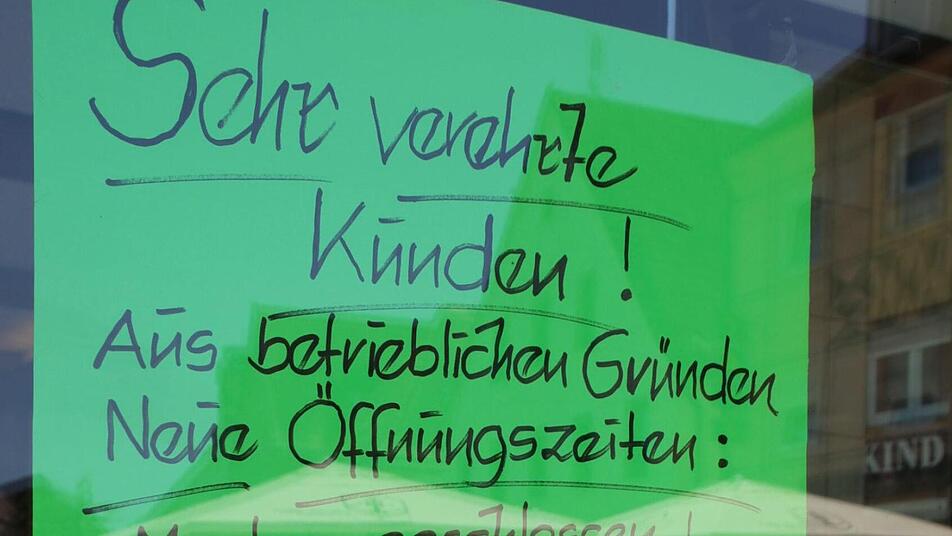 Sehr verehrte
Kunden!
Aus betrieblichen Gründen
Neue Öffnungszeiten:
geschlossen!
KIND